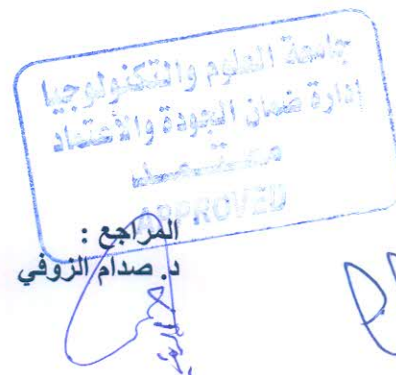 جامعة العلوم والتكنولوجيا
إدارة ضمان الجودة والأعتماد
معتمد
APPROVED
المراجع :
د. صدام الزوفي